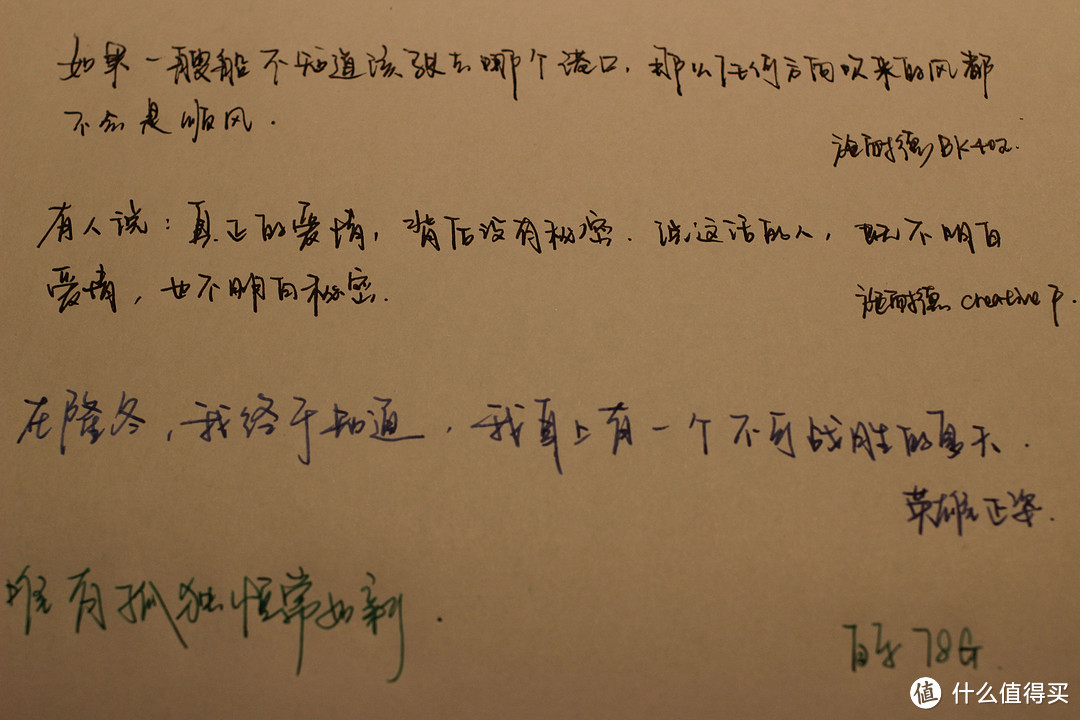 如果一艘船不知道该驶去哪个港口，那么任何方向吹来的风都
不会是顺风．
施耐德 BK402.
有人说：真正的爱情，背后没有秘密．说这话的人，既不明白
爱情，也不明白秘密．
施耐德 creative P.
在隆冬，我终于知道，我身上有一个不可战胜的夏天．
英雄正姿．
唯有孤独恒常如新．
百乐 78G
值 什么值得买